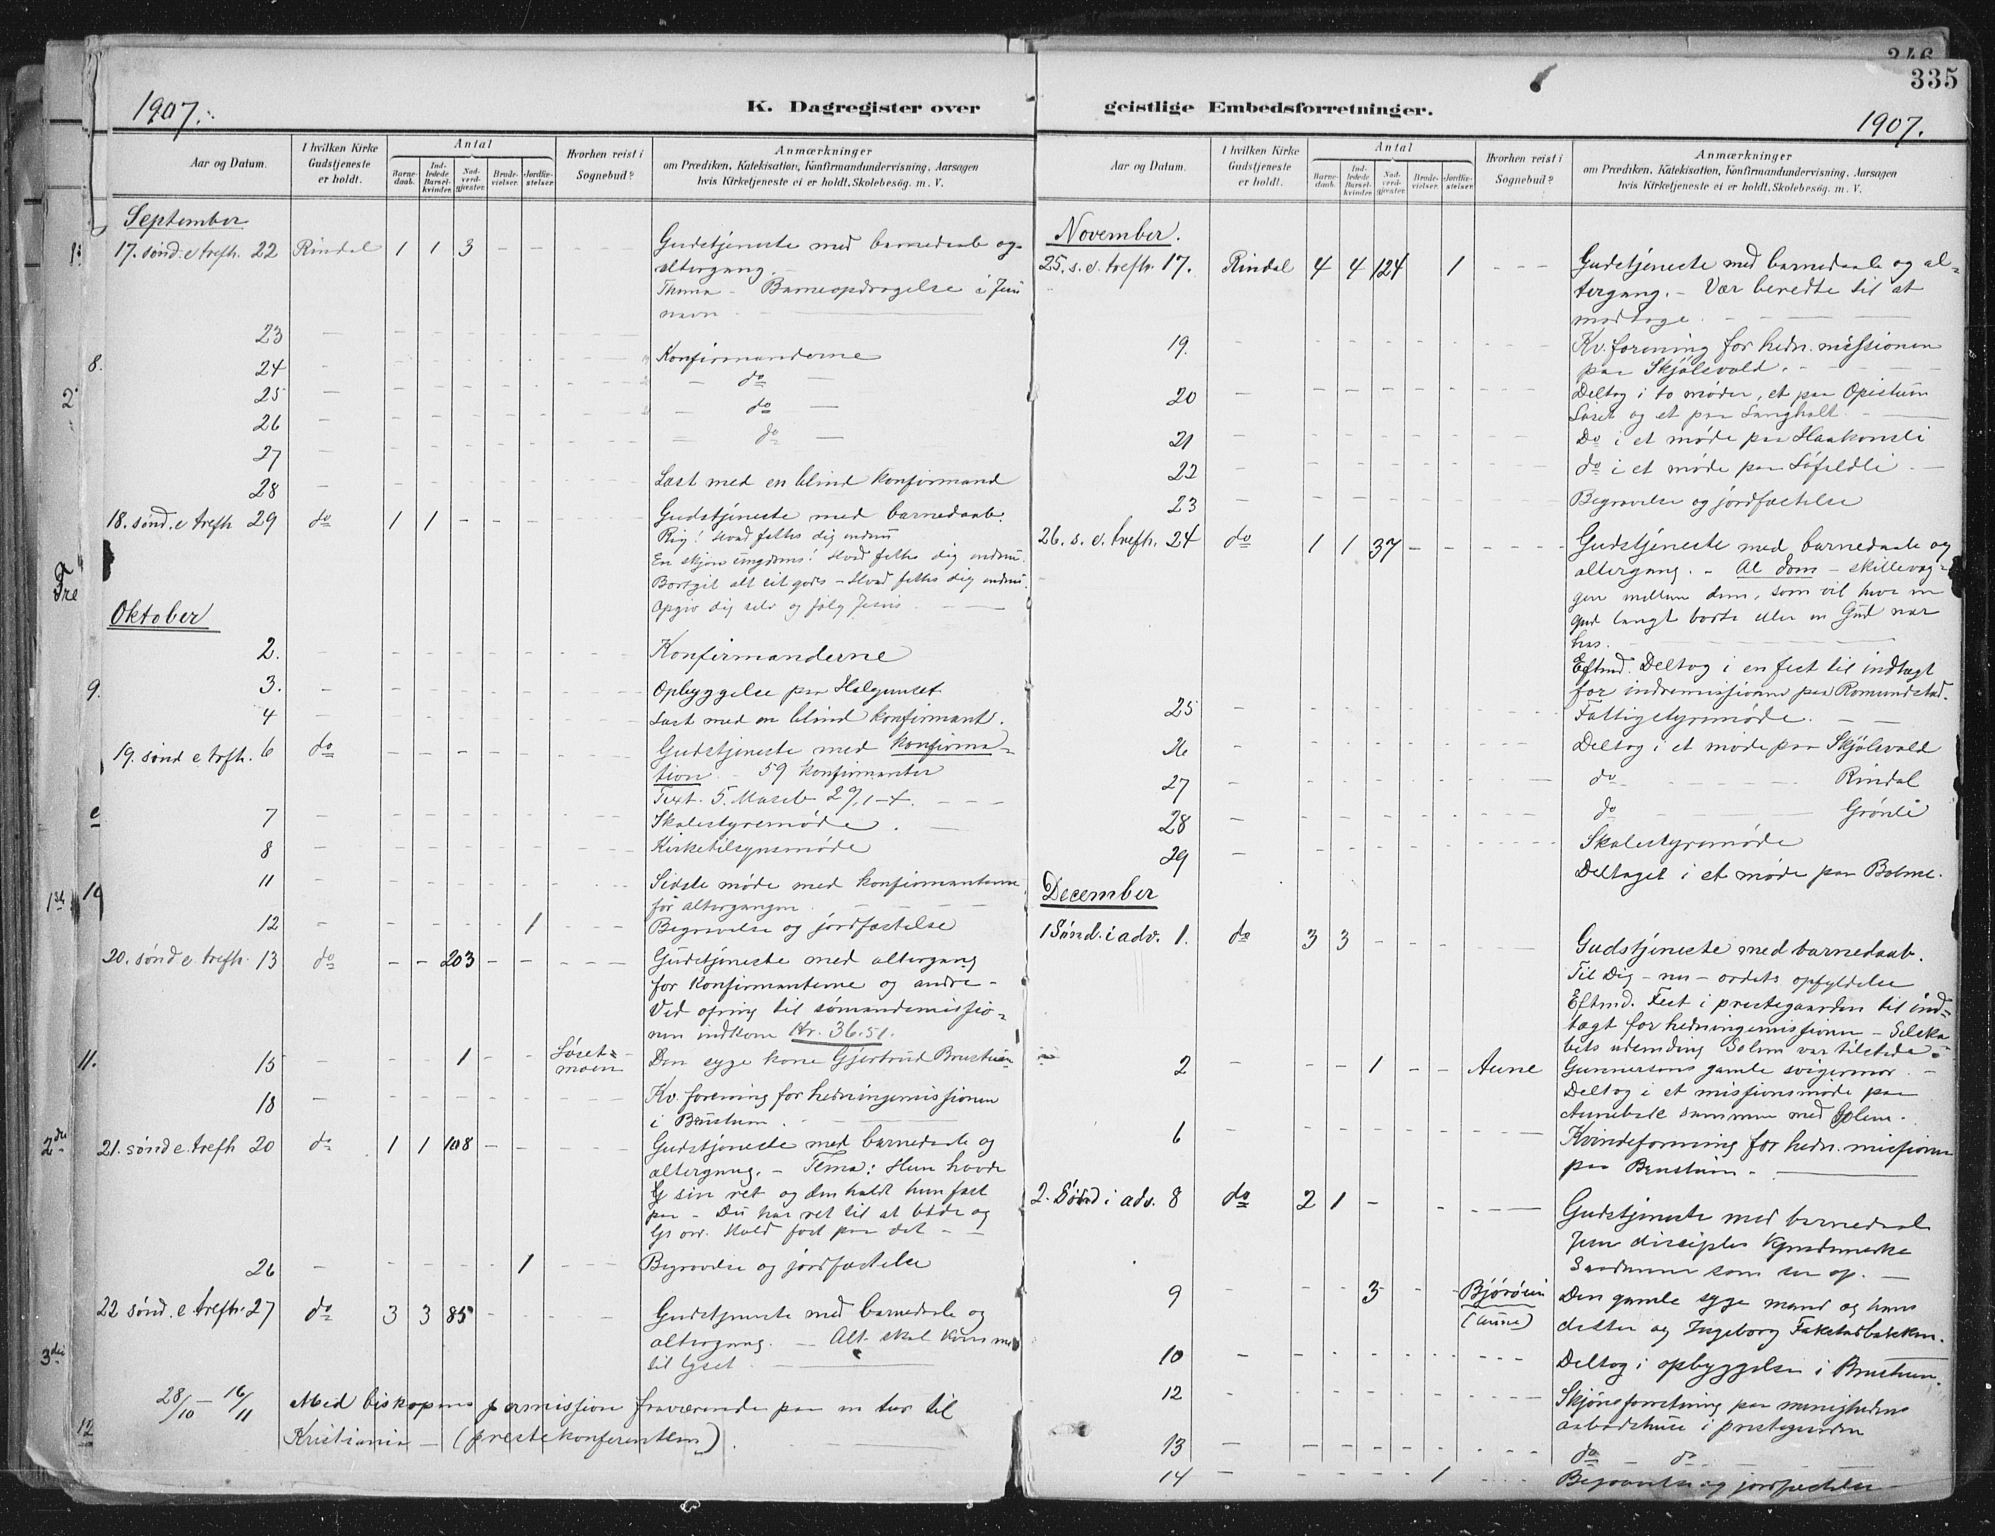 335
1907.
K. Dagregister over
geistlige Embedsforretninger.
1907.
Aar og Datum. I hvilken Kirke Gudstjeneste er holdt. Antal Barnedaab. Indledede Barselkvinder. Nadverdgjester. Brudevielser. Jordfæstelser. Hvorhen reist i Sognebud? Anmærkninger om Prædiken, Katekisation, Konfirmandundervisning, Aarsagen hvis Kirketjeneste ei er holdt, Skolebesøg. m. V.
September
17. sønd. e trefh. 22 Rindal 1 1 3 - - - - Gudstjeneste med barnedaab og
altergang.
Thema - Barneopdragelse i Jesu
navn
23 Konfirmanderne
24 - do -
25 - do -
26 - do -
27
28 Læst med en blind konfirmand
18. sønd. e trefh 29 do 1 1 - - - Gudstjeneste med barnedaab.
Rig! Hvad fattes dig endnu
En skjøn ungdoms! Hvad fattes dig endnu.
Bortgit alt eit gods - Hvad fattes dig endnu.
Opgiv dig selv og følg Jesus.
Oktober
2. Konfirmanderne
3. Opbyggelse paa Halgunset
4 Læst med en blind konfirmant.
19. sønd e trfh. 6 do Gudstjeneste med konfirma-
tion. - 59 konfirmanter
Text. 5. Moseb 29, 1-4.
7 Skolestyremøde.
8 Kirketilsynsmøde
11 Sidste møde med konfirmanterne
før altergangen.
12 1 Begravelse og jordfæstelse
20. sønd e trefh. 13 do - - 203 - - - Gudstjeneste med altergang
for konfirmanterne og andre -
Ved ofring til sømandsmissio-
nen indkom Kr. 36.51.
15 1 - - Løset-
moen Den syge kone Gjertrud Brustuen
18 Kv. forening for hedningemissionen
i Brustuen.
21. sønd e trefh 20 do 1 1 108 - - - Gudstjeneste med barnedaab og
altergang. - Tema: Hun havde
sin ret og den holdt hun fast
paa - Du har ret til at bede og
Hold fast paa det -
26 1 Begravelse og jordfæstelse
22 sønd. e trefh. 27 do 3 3 85 - - - Gudstjeneste med barnedaab og
altergang. - Alt skal komme
til lyset.
28/10 - 16/11 Med biskopens permission fraværende paa en tur til
Kristiania - (prestekonferentsen).
Aar og Datum. I hvilken Kirke Gudstjeneste er holdt. Antal Barnedaab. Indledede Barselkvinder. Nadverdgjester. Brudevielser. Jordfæstelser. Hvorhen reist i Sognebud? Anmærkninger om Prædiken, Katekisation, Konfirmandundervisning, Aarsagen hvis Kirketjeneste ei er holdt. Skolebesøg. m. V.
November.
25. s. e. trefh. 17. Rindal 4 4 124 1 - - - Gudstjeneste med barnedaab og al-
tergang. - Vær beredte til at
modtage.
19. Kv. forening for hedn. missionen
paa Skjølsvold.
20 Deltog i to møder, et paa
Løset og et paa Langholt.
21 Do i et møde paa Haakonsli
22 do i et møde paa Løfaldli
23 Begravelse og jordfæstelse
26. s. e. trefh. 24 do 1 1 37 - - - Gudstjeneste med barnedaab og
altergang. - Al dom - skillevæg-
gen mellem dem, som vil have en
Gud langt borte eller en Gud nær
hos.
Eftmd. Deltog i en fest til indtægt
for indremissionen paa Romundstad.
25 Fattigstyremøde.
26 Deltog i et møde paa Skjølsvold
27 do Rindal
28 do Grønli
29 Skolestyremøde
Deltaget i et møde paa Bolme.
December
1 Sønd. i adv. 1. do 3 3 - - - Gudstjeneste med barnedaab.
Til Dig - nu - ordets opfyldelse
Eftmd. Fest i prestegaarden til ind-
tægt for hedningemissionen - Selska-
bets udsending Solem var tilstede.
2 1 - - Aune Gunnersons gamle svigermor.
Deltog i et missionsmøde paa
Aunebak sammen med Solem.
6 Kvindeforening for hedn. missionen
paa Brustuen.
2. Sønd i adv. 8 do 2 1 - - - Gudstjeneste med barnedaab
Jesu disciples Kjendsmærke
som ser op.
9 3 Bjøråen
(Aune) Den gamle syge mand og hans
datter og Ingeborg
10 Deltog i opbyggelse i Brustuen.
12 Skjønsforretning paa menighedens
arbeidshuse i prestegaarden
13 do do
14 1 Begravelse og jordfæstelse